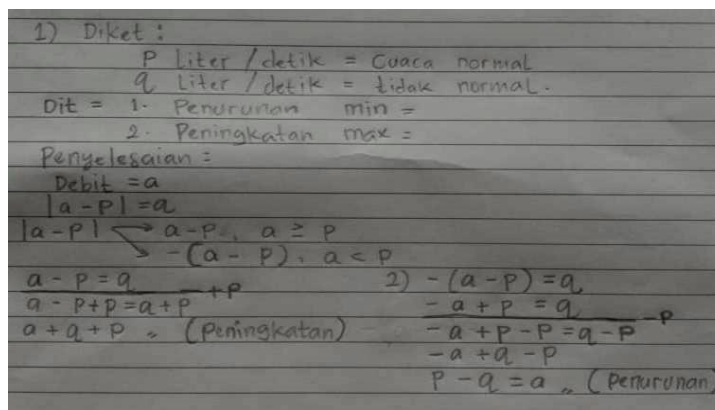 1) Diket :
P Liter / detik = Cuaca normal
q Liter / detik = tidak normal.
Dit = 1. Penurunan min =
2. Peningkatan max =
Penyelesaian =
Debit = a
|a - p| = q
|a - p| → a - p, a ≥ p
→ -(a - p), a < p
a - p = q
+p
a - p + p = q + p
a + q + p " (Peningkatan)
2) -(a - p) = q
- a + p = q
-p
- a + p - p = q - p
- a + q - p
p - q = a " (Penurunan)